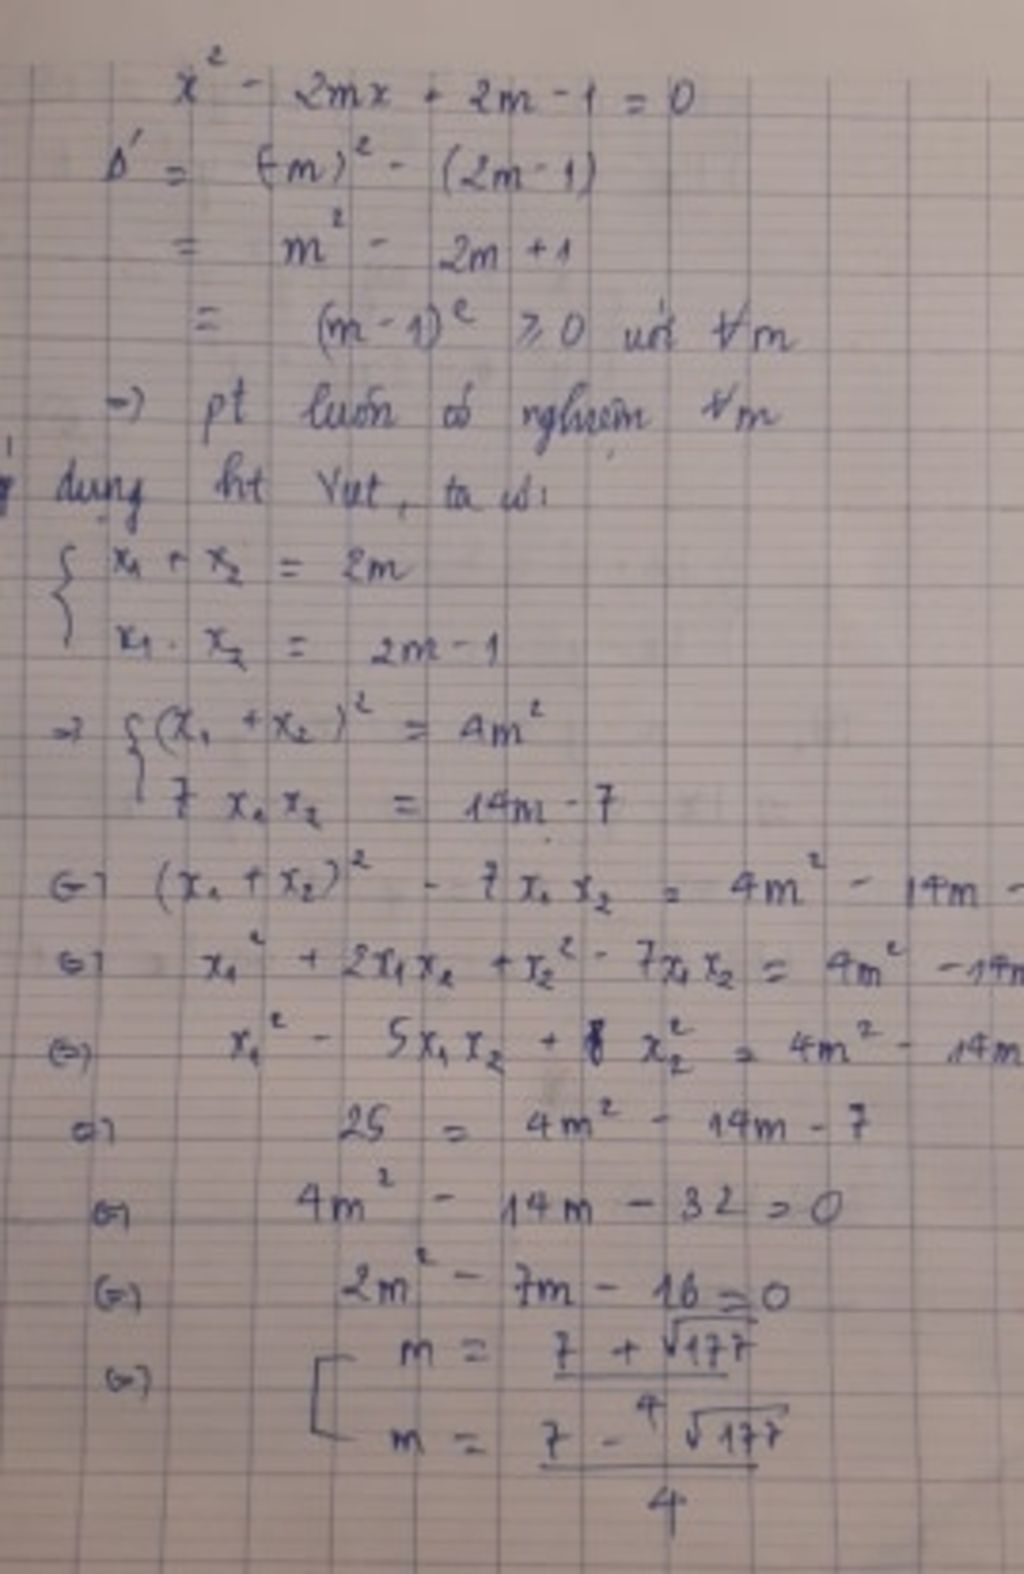 x² - 2mx + 2m - 1 = 0
Δ' = (-m)² - (2m - 1)
= m² - 2m + 1
= (m - 1)² ≥ 0 với ∀m
=> pt luôn có nghiệm ∀m
dụng ht Viet, ta có:
{ x₁ + x₂ = 2m
x₁ . x₂ = 2m - 1
=> { (x₁ + x₂)² = 4m²
7 x₁ x₂ = 14m - 7
<=> (x₁ + x₂)² - 7 x₁ x₂ = 4m² - 14m -
<=> x₁² + 2x₁x₂ + x₂² - 7x₁x₂ = 4m² - 14m
<=> x₁² - 5x₁x₂ + x₂² = 4m² - 14m
<=> 25 = 4m² - 14m - 7
<=> 4m² - 14m - 32 = 0
<=> 2m² - 7m - 16 = 0
<=> [ m = (7 + √177)/4
m = (7 - √177)/4